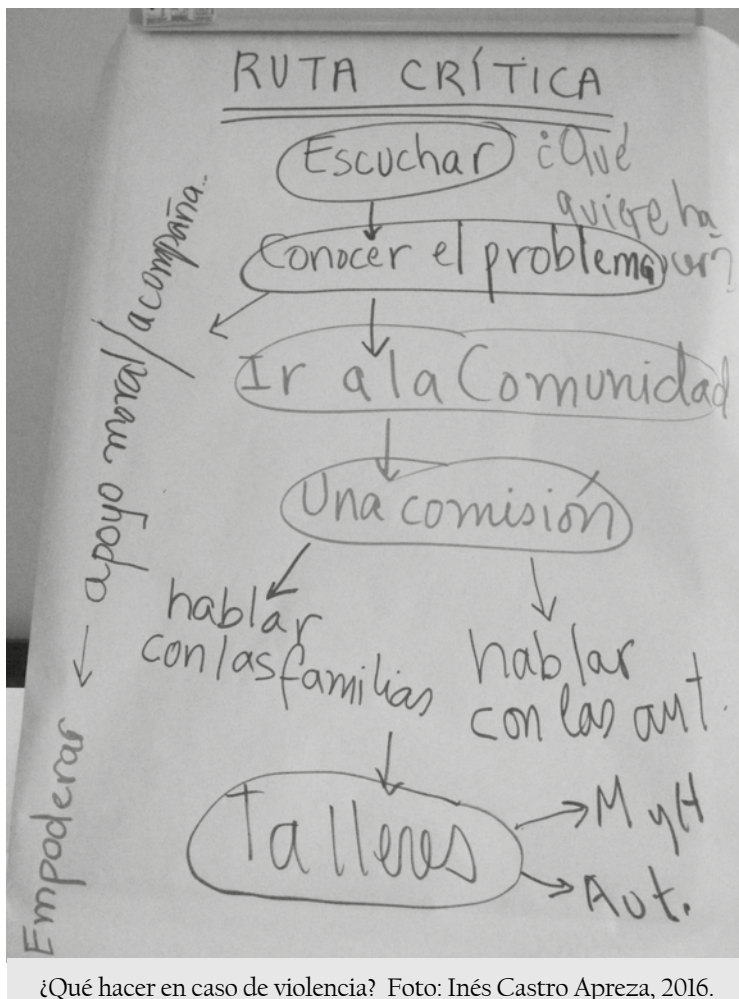 RUTA CRÍTICA
Escuchar
¿Qué
quiere ha
cer?
Conocer el problema
Ir a la Comunidad
Una comisión
hablar
con las familias
hablar
con las aut.
Talleres
M y H
Aut.
apoyo moral/acompaña..
Empoderar
¿Qué hacer en caso de violencia? Foto: Inés Castro Apreza, 2016.